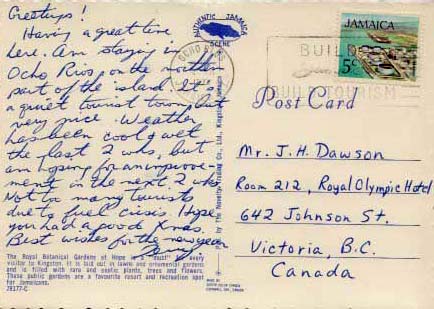 Greetings!
Having a great time
here. Am staying in
Ocho Rios, on the northern
part of the island. It is
a quiet tourist town, but
very nice. Weather
has been cool & wet
the past 2 wks, but
am hoping for an improve-
ment in the next 2 wks.
Not too many tourists
due to fuel crisis. Hope
you had a good Xmas.
Best wishes for the new year
The Royal Botanical Gardens of Hope - a "must" for every
visitor to Kingston. It is laid out in lawns and ornamental gardens
and is filled with rare and exotic plants, trees and flowers.
These public gardens are a favourite resort and recreation spot
for Jamaicans.
JE177-C
AUTHENTIC JAMAICA
SCENE
by The Novelty Trading Co., Ltd., Kingston, Jamaica
OCHO RIOS
JAMAICA
5c
BUILD
BUILD TOURISM
Post Card
Mr. J. H. Dawson
Room 212, Royal Olympic Hotel
642 Johnson St.
Victoria, B.C.
Canada
MADE BY